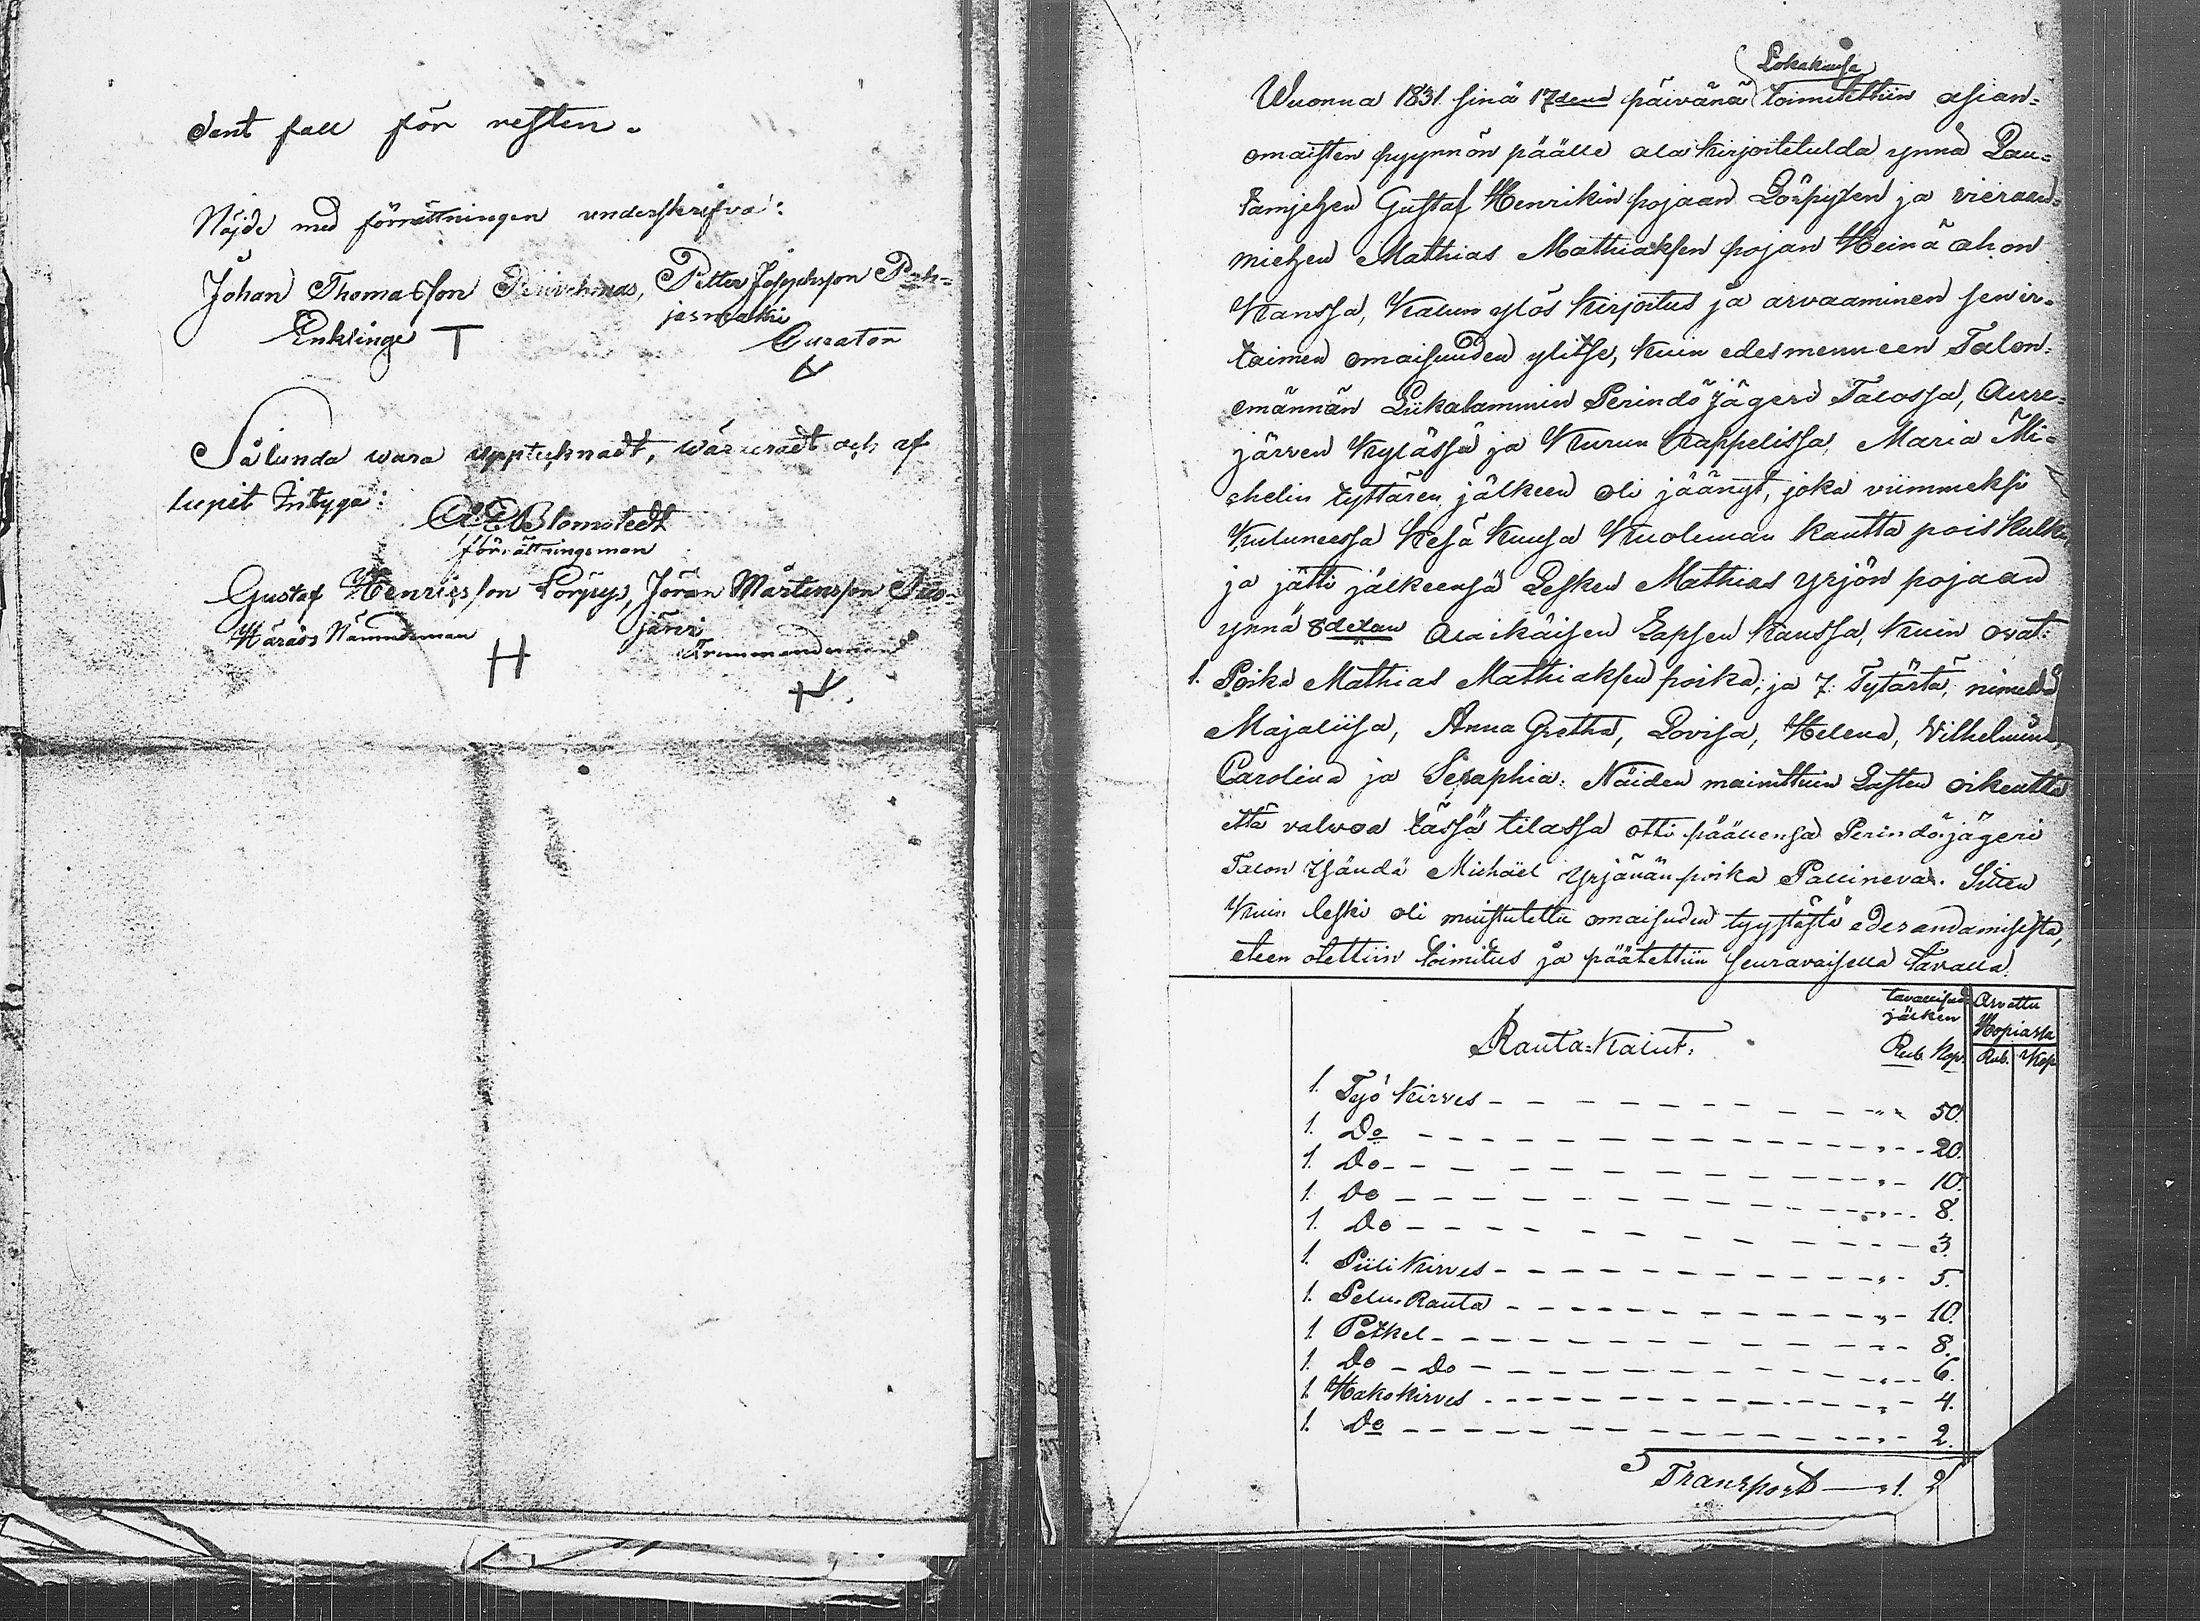 dent fall för resten.
Nöjde med förrättningen underskrifva:
Johan Thomasson Petter Josephsson Poh=
Enklinge T jasmäki
Curator
Sålunda vara upptecknadt, wärderadt och af
lupit intyga:
A E Blomstedt
förrättningsman
Gustaf Henricsson Pörpys, Jöran Mårtensson
Härads Nämndeman järvi
H
Lokakuusa
Wuonna 1831. sinä 17dend päivänä toimitettiin asian=
omaisten pyynnön päälle ala kirjoitetulda ynnä Lau=
tamjehen Gustaf Henrikin pojaan Pörpyxen ja vieraan=
miehen Mathias Mathiaksen pojan Heinä ahon
Kanssa, Kalun ylös kirjoitus ja arvaaminen sen ir=
taimen omaisuuden ylitse, kuin edesmenneen Talon=
emännän Liikalammin Perindö Jägeri Talossa, Aure=
järven Kylässä ja Kurun Cappelissa, Maria Mi=
chelin tyttären jälkeen oli jäänyt, joka viimmeksi
Kuluneessa Kesä Kuusa Kuoleman kautta pois kulki,
ja jätti jälkeensä Lesken Mathias yrjön pojaan
ynnä 8dexan alaikäisen Lapsen kanssa, kuin ovat:
1. Poika Mathias Mathiaksen poika, ja 7. Tytärtä, nimeldä
Majaliisa, Anna Gretha, Lovisa, Helena, Vilhelmina,
Carolina ja Seraphia. Näiden mainittuin Lasten oikeutta
että valvoa tässä tilassa otti päällensä Perindöjägeri
Talon Isändä Michäel Yrjänän poika Pallineva. Sitten
Kuin leski oli muistutettu omaisuden tyystästä edesandamisesta,
eteen otettiin toimitus ja päätettiin seuravaisella tavalla.
tavallisud jälken Arvattu Hopiassa
Rauta=Kalut: Rub. Kop. Rub. Kop
1. Työ Kirves - - - - 50.
1. Do - - - - 20.
1. Do - - - - 10.
1. Do - - - - 8.
1. Do - - - - 3.
1. Piili Kirves - - - - 5.
1. Pelu=Rauta - - - - 10.
1. Petkel - - - - 8.
1. Do - Do - - - - 6.
1. Hakokirves - - - - 4.
1. Do - - - - 2.
Transport - 1. 2